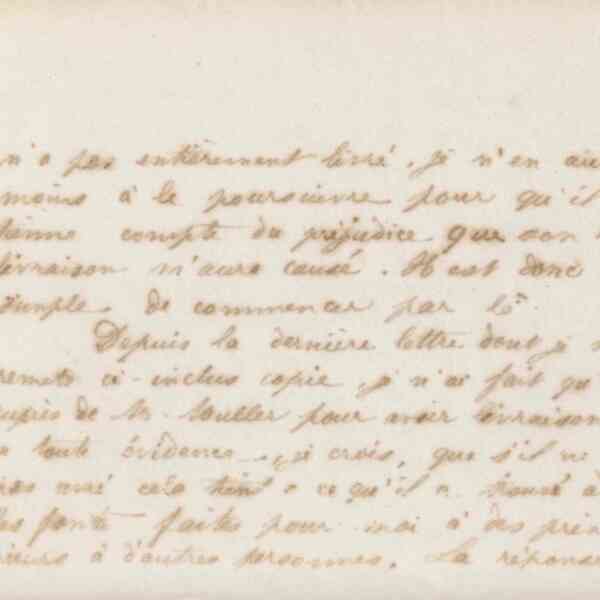 n'a pas entièrement livré, je n'en au
moins à le poursuivre pour qu'il
tienne compte du préjudice que son
livraison m'aura causé. Il est donc
simple de commencer par là.
Depuis la dernière lettre dont je
remets ci-inclus copie, je n'ai fait qu
auprès de Mr. Muller pour avoir livraison
toute évidence, je crois, que s'il ne
livré cela tient à ce qu'il a trouvé à
les fonte faites pour moi à des prix
à d'autres personnes. La réponse